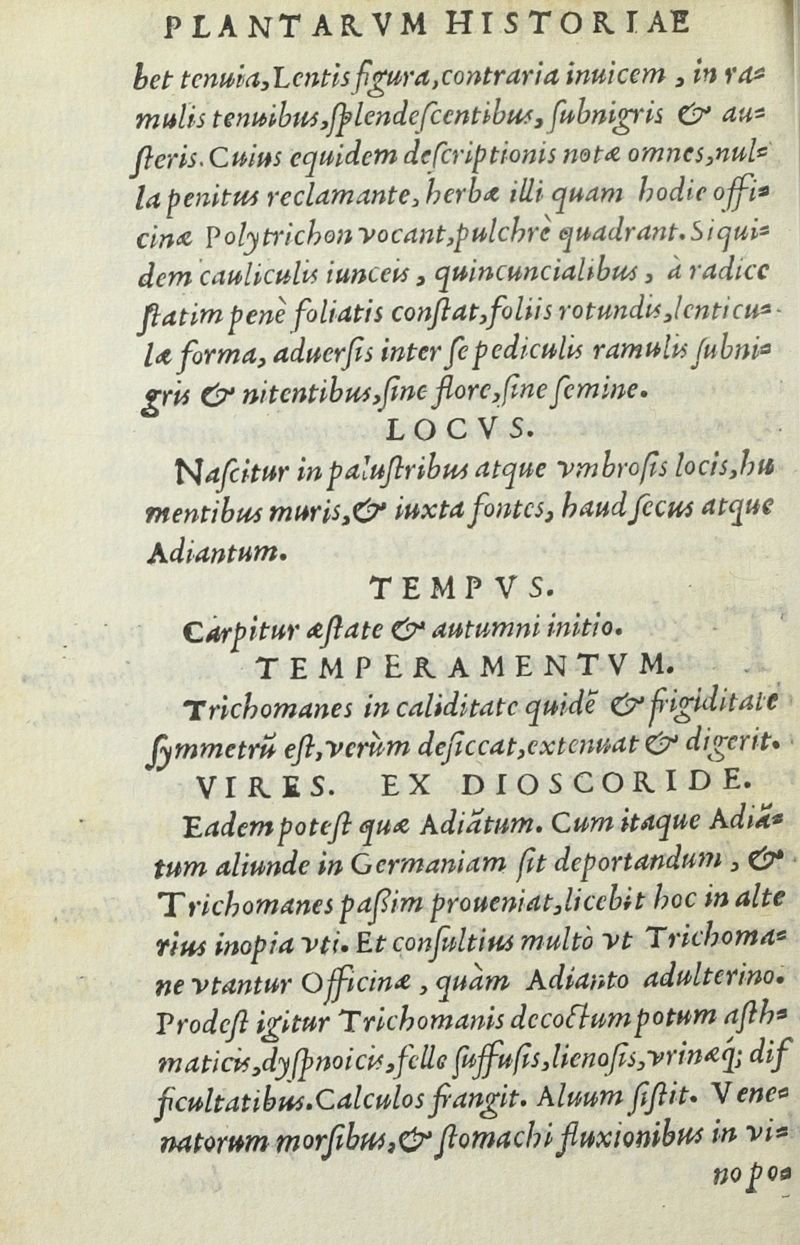 PLANTARVM HISTORIAE
bet tenuia, Lentis figura, contraria inuicem, in ra-
mulis tenuibus, ſplendeſcentibus, ſubnigris & au-
ſteris. Cuius equidem deſcriptionis notæ omnes, nul-
la penitus reclamante, herbæ illi quam hodie offi-
cinæ Polytrichon vocant, pulchrè quadrant. Siqui-
dem cauliculis iunceis, quincuncialibus, à radice
ſtatim penè foliatis conſtat, foliis rotundis, lenticu-
læ forma, aduerſis inter ſe pediculis ramulis ſubni-
gris & nitentibus, ſine flore, ſine ſemine.
LOCVS.
Naſcitur in paluſtribus atque vmbroſis locis, hu
mentibus muris, & iuxta fontes, haud ſecus atque
Adiantum.
TEMPVS.
Carpitur æſtate & autumni initio.
TEMPERAMENTVM.
Trichomanes in caliditate quidē & frigiditate
ſymmetrū eſt, verùm deſiccat, extenuat & digerit.
VIRES. EX DIOSCORIDE.
Eadem poteſt quæ Adiātum. Cum itaque Adiā-
tum aliunde in Germaniam ſit deportandum, &
Trichomanes paßim proueniat, licebit hoc in alte
rius inopia vti. Et conſultius multò vt Trichoma-
ne vtantur Officinæ, quàm Adianto adulterino.
Prodeſt igitur Trichomanis decoctum potum aſth-
maticis, dyſpnoicis, felle ſuffuſis, lienoſis, vrinæq́; dif
ficultatibus. Calculos frangit. Aluum ſiſtit. Vene-
natorum morſibus, & ſtomachi fluxionibus in vi-
no po-